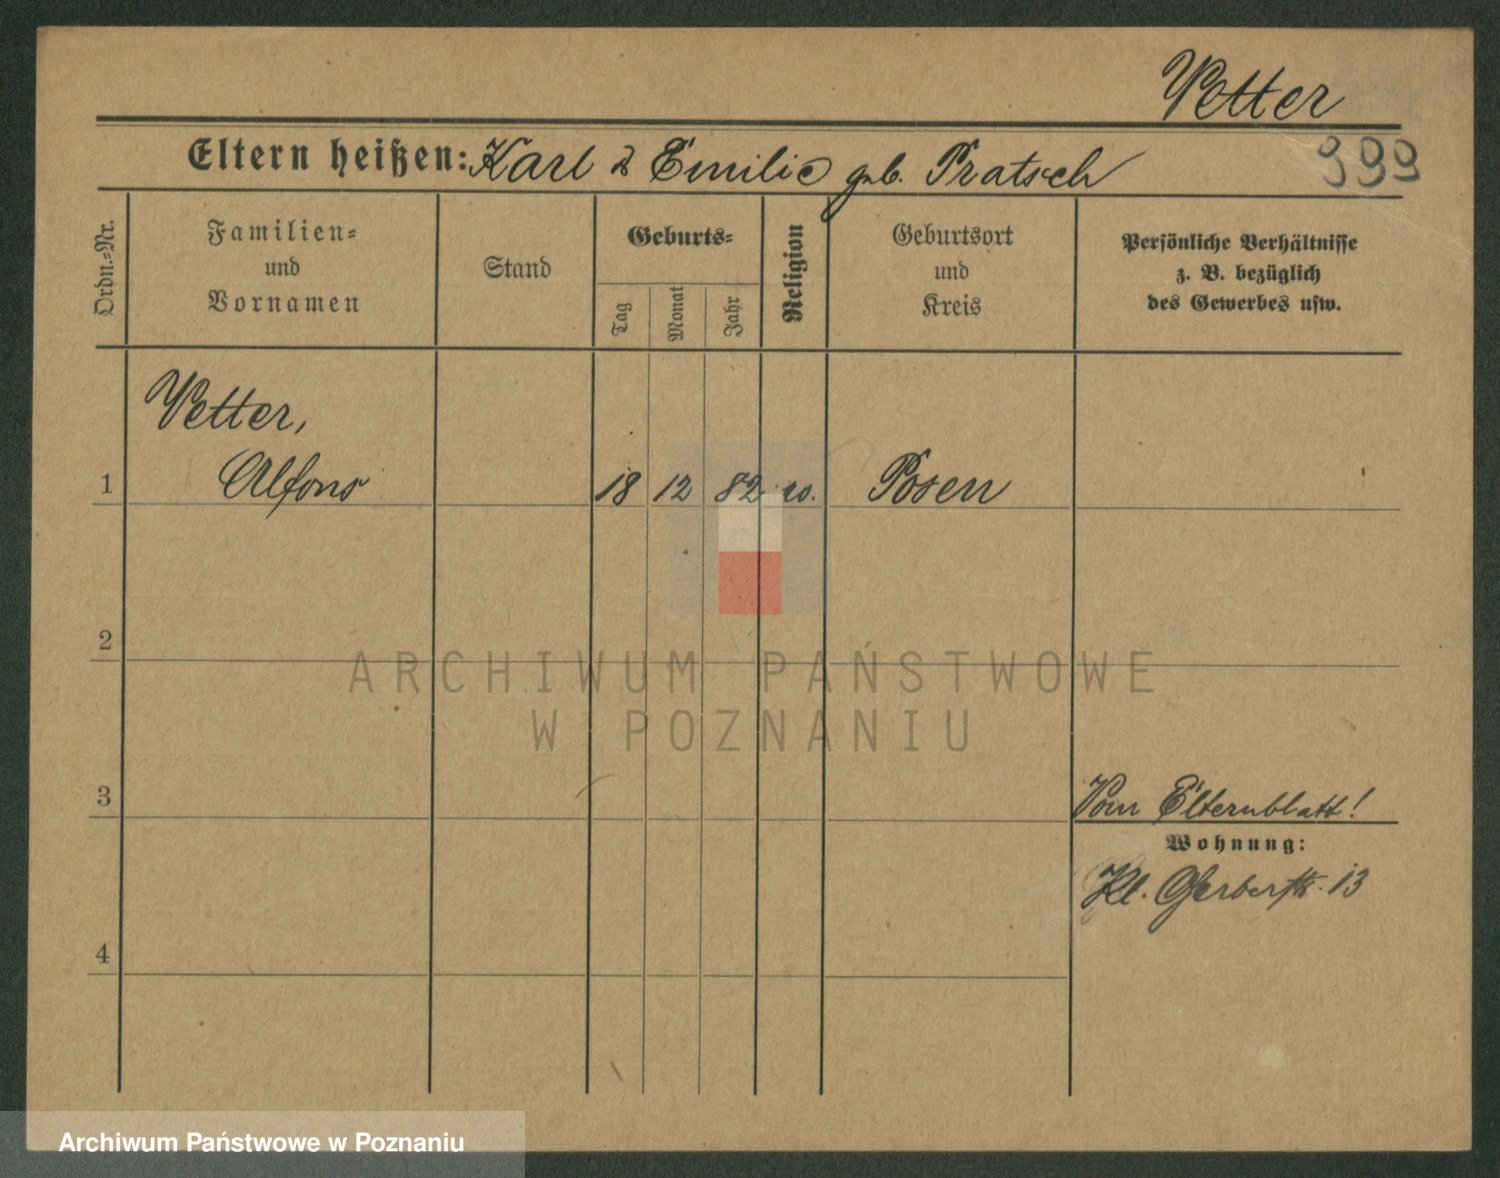 Vetter
Eltern heißen: Karl & Emilie geb. Pratsch
999
Ordn.-Nr.
Familien-
und
Vornamen
Stand
Geburts-
Tag
Monat
Jahr
Religion
Geburtsort
und
Kreis
Persönliche Verhältnisse
z. B. bezüglich
des Gewerbes usw.
Vetter,
1 Alfons 18 12 82 Posen
2
ARCHIWUM PAŃSTWOWE
W POZNANIU
3
Vom Elternblatt!
Wohnung:
Kl. Gerberstr. 13
4
Archiwum Państwowe w Poznaniu